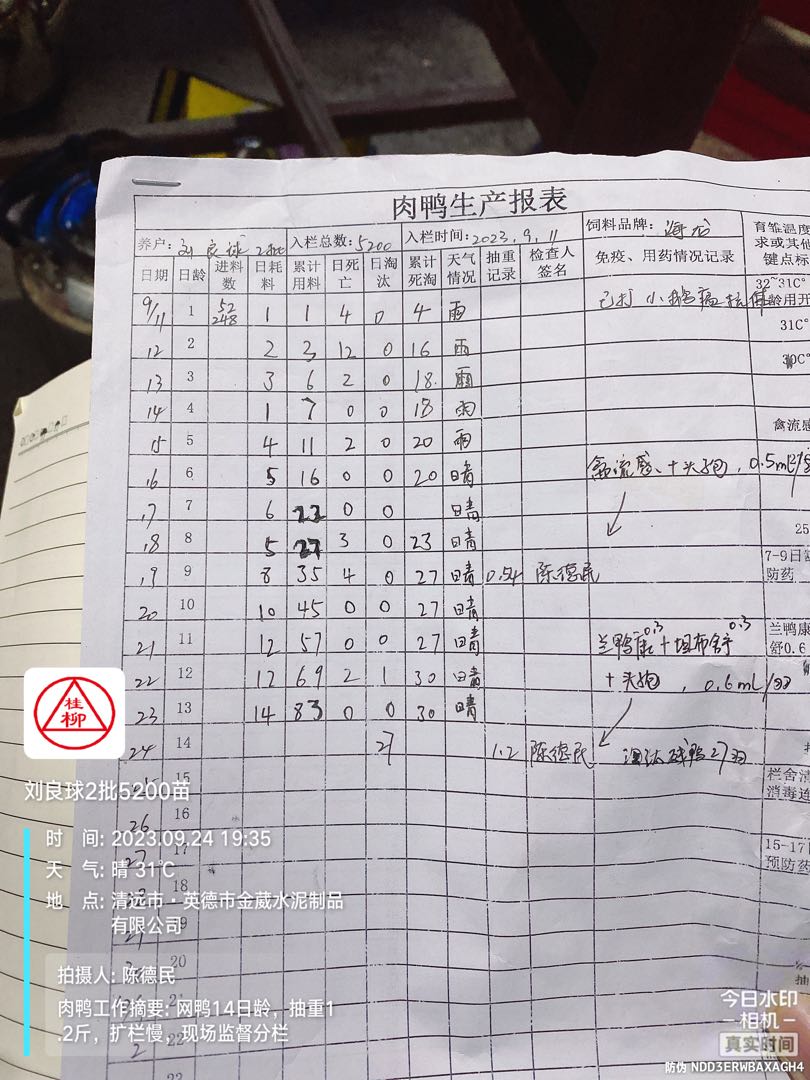 肉鸭生产报表
养户: 刘良球2批 入栏总数: 5200 入栏时间: 2023.9.11 饲料品牌: 海龙 育雏温度
求或其他
键点标
日期 日龄 进料数 日耗料 累计用料 日死亡 日淘汰 累计死淘 天气情况 抽重记录 检查人签名 免疫、用药情况记录
9/11 1 52 248 1 1 4 0 4 雨 已打小鹅瘟抗体 32~31C°
龄用开
12 2 2 3 12 0 16 雨 31C°
13 3 3 6 2 0 18 雨 30C°
14 4 1 7 0 0 18 雨
15 5 4 11 2 0 20 雨 禽流感
16 6 5 16 0 0 20 晴 禽流感、+头孢,0.5ml/羽
17 7 6 22 0 0 晴
18 8 5 27 3 0 23 晴 25
19 9 8 35 4 0 27 晴 0.54 陈德民 7-9日
防药
20 10 10 45 0 0 27 晴
21 11 12 57 0 0 27 晴 兰鸭康0.3+坦布舒0.3 兰鸭康
舒0.6
22 12 12 69 2 1 30 晴 +头孢,0.6mL/羽
23 13 14 83 0 0 30 晴
24 14 27 1.2 陈德民 淘汰残鸭27羽
15 栏舍清
消毒连
26 16
17 15-17日
预防药
18
20
21
22
桂柳
刘良球2批5200苗
时 间: 2023.09.24 19:35
天 气: 晴 31℃
地 点: 清远市·英德市金葳水泥制品
有限公司
拍摄人: 陈德民
肉鸭工作摘要: 网鸭14日龄，抽重1
.2斤，扩栏慢，现场监督分栏
今日水印
-相机-
真实时间
防伪 NDD3ERWBAXAGH4